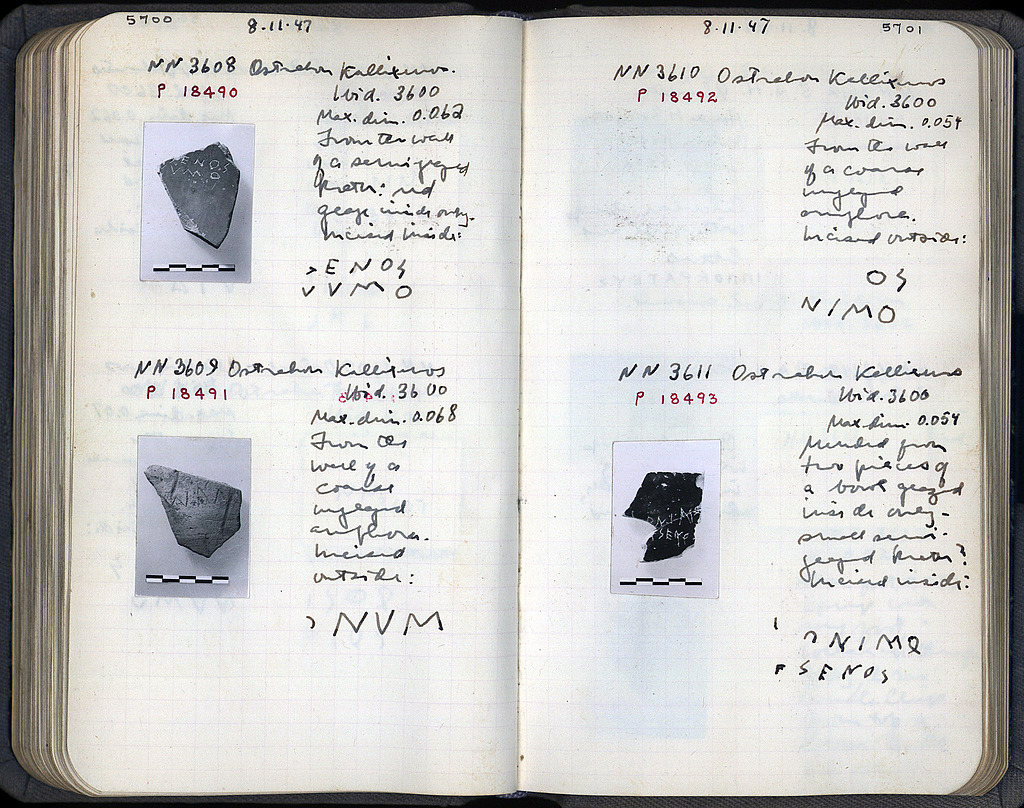 5700
8.11.47
NN 3608 Ostrakon Kallixenos.
P 18490
Ibid. 3600
Max. dim. 0.062
From the wall
of a semiglazed
krater: red
glaze inside only.
Incised inside:
ENOS
VMO
NN 3609 Ostrakon Kallixenos
P 18491
Ibid. 3600
Max. dim. 0.068
From the
wall of a
coarse
unglazed
amphora.
Incised
outside:
NVM
8.11.47
5701
NN 3610 Ostrakon Kallixenos
P 18492
Ibid. 3600
Max. dim. 0.054
From the wall
of a coarse
unglazed
amphora.
Incised outside:
OS
NIMO
NN 3611 Ostrakon Kallixenos
P 18493
Ibid. 3600
Max. dim. 0.054
Mended from
two pieces of
a bowl glazed
inside only -
small semi-
glazed krater?
Incised inside:
NIMO
SENOS